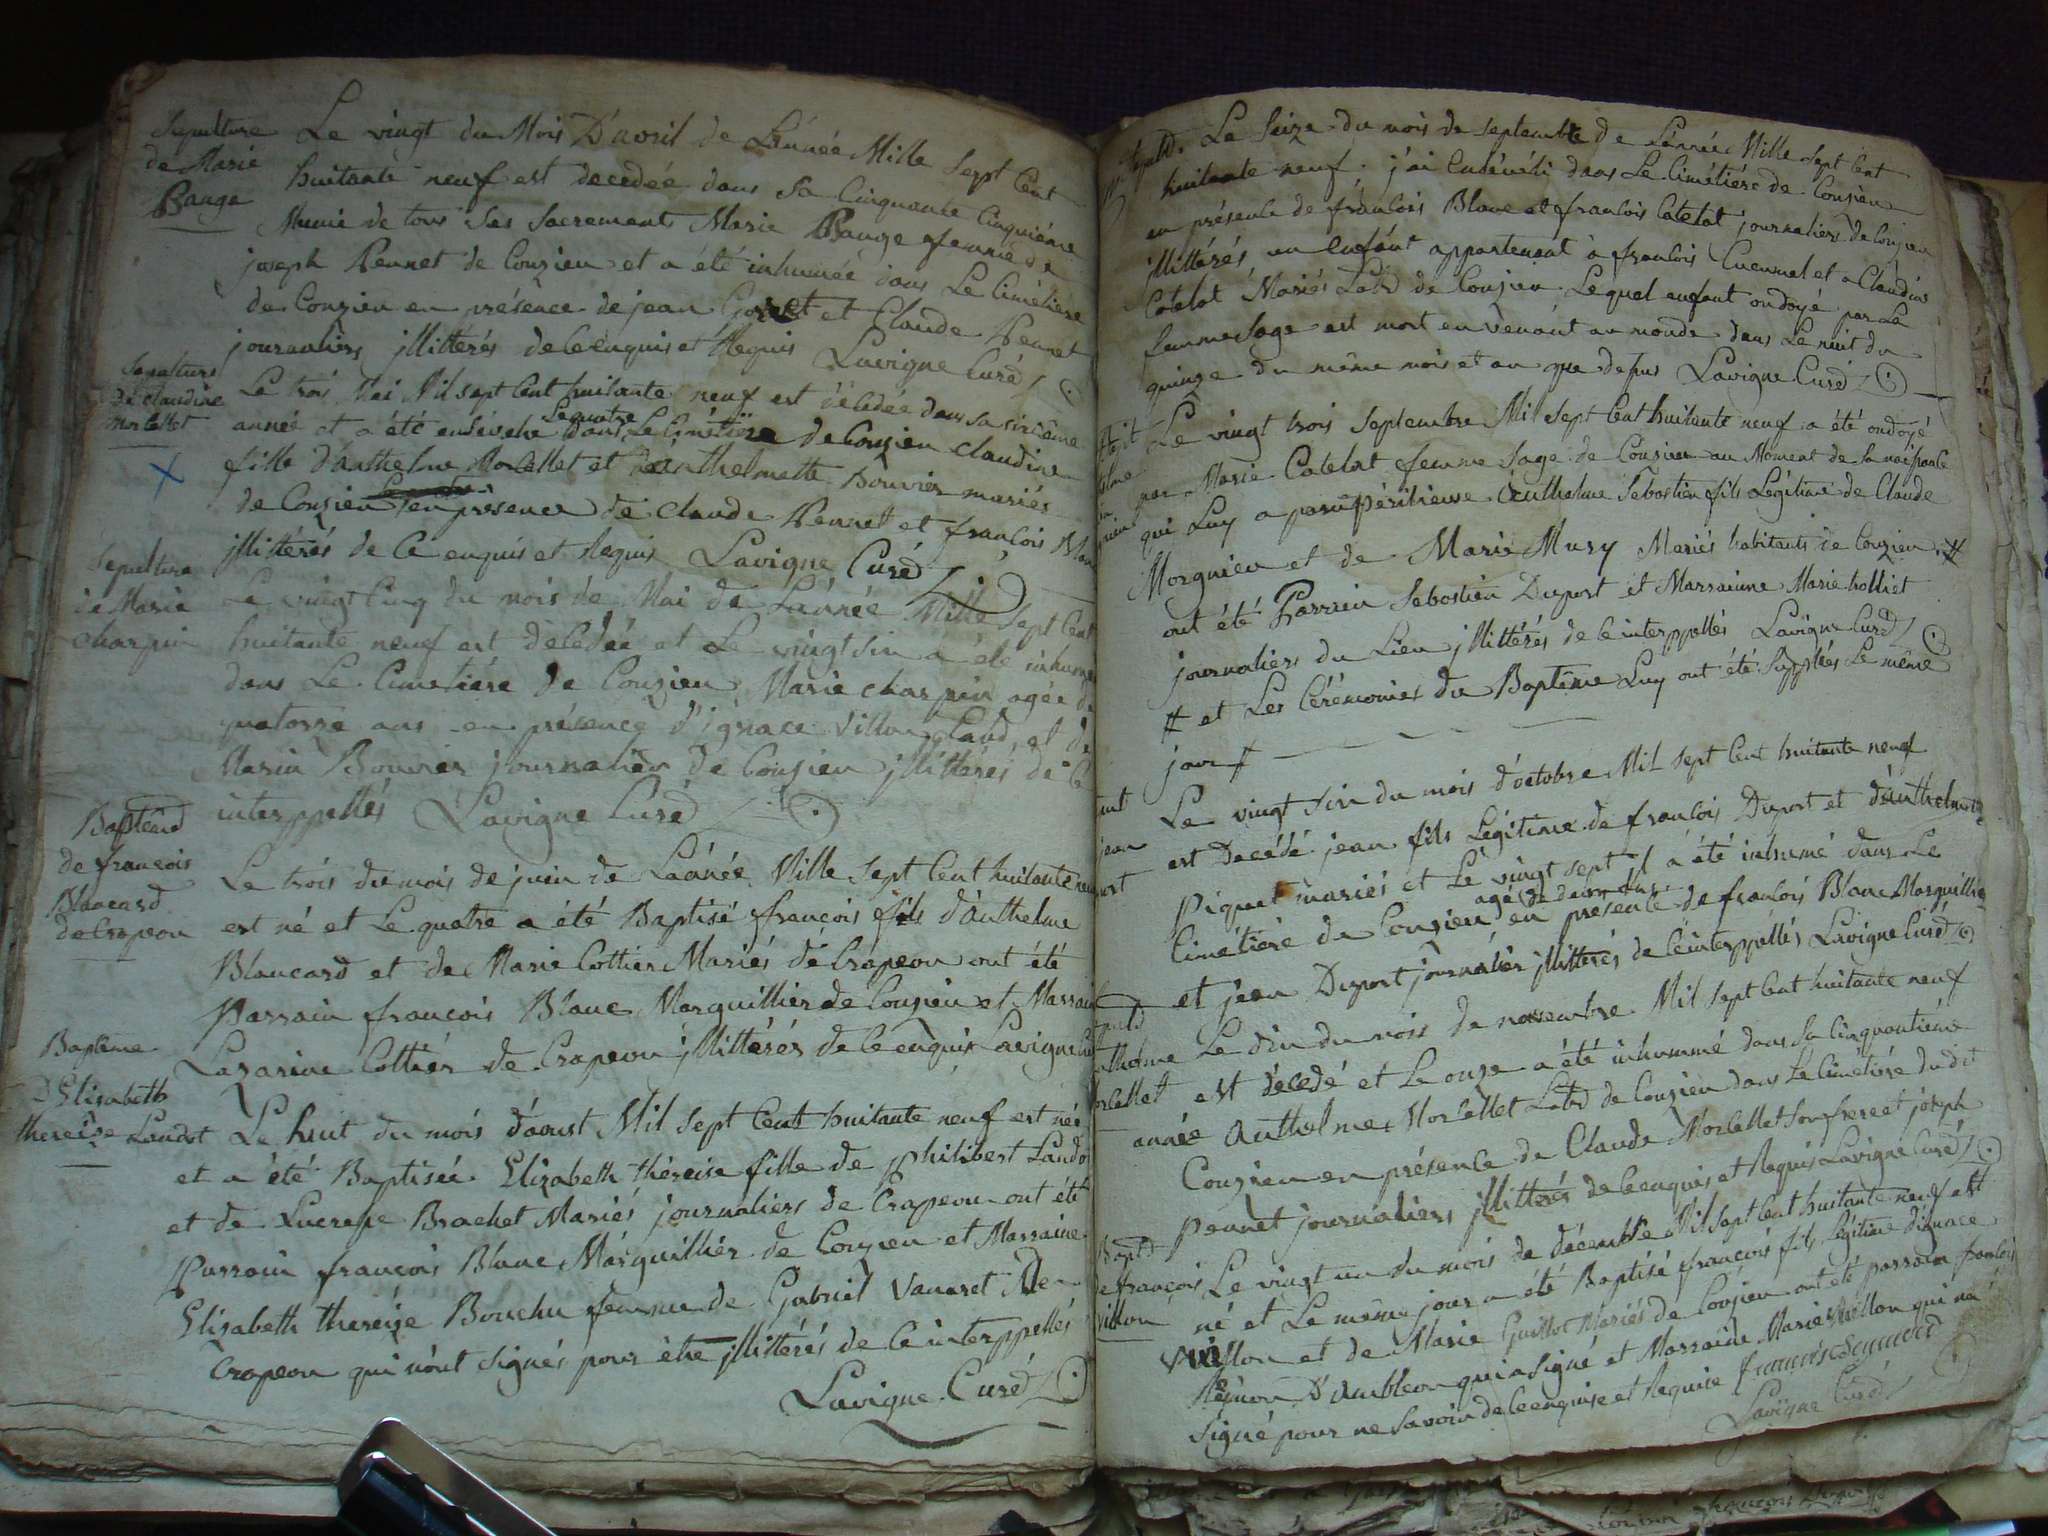 Sepulture
de Marie
Bauge
Le vingt du Mois D'avril de L'année Mille Sept Cent
huitante neuf est decedée dans Sa Cinquante Cinquiéme
Munie de tous Ses Sacrements Marie Bauge femme de
joseph Pennet de Conzieu et a été inhumée dans Le Cimétiére
de Conzieu en présence de jean et Claude Pennet
journaliers jllittérés de Ce enquis et Requis Lavigne Curé
Sepulture
de claudine
Morlellet
Le trois Mai Mil sept Cent huitante neuf est décédée dans sa sixiéme
année et a été ensévelie Le quatre dans Le Cimétiére de Conzieu claudine
fille d'anthelme Morcellet et d'anthelmette Bouvier mariés
de Conzieu en présence de Claude Pennet et françois Blanc
jllittérés de Ce enquis et Requis Lavigne Curé
Sepulture
de Marie
charpin
Le vingt Cinq du mois de Mai de L'année Mille Sept Cent
huitante neuf est décédée et Le vingt six a été inhumée
dans Le Cimetiére de Conzieu Marie charpin agée de
quatorze ans en présence d'ignace Villon Land et de
Marin Bouvier journalier de Conzieu jllittérés de Ce
interppellés Lavigne Curé
Baptême
de françois
Blancard
de Crapeou
Le trois du mois de juin de L'année Mille Sept Cent huitante neuf
est né et Le quatre a été Baptisé françois fils d'anthelme
Blancard et de Marie Cottier Mariés de Crapeou ont été
Parrain françois Blanc Marguillier de Conzieu et Marraine
Lazarine Cottier de Crapeou jllittérés de Ce enquis Lavigne Curé
Baptême
D'Elisabeth
théreise Landot
Le huit du mois d'aoust Mil Sept Cent huitante neuf est née
et a été Baptisée Elizabeth théreise fille de philibert Landot
et de Lucresse Brachet Mariés journaliers de Crapeou ont été
Parrain françois Blanc Marguillier de Conzieu et Marraine
Elisabeth thereize Bouchu femme de Gabriel Vanaret De
Crapeou qui n'ont signés pour être jllittérés de Ce interppellés
Lavigne Curé
Le Seize du mois de septembre de L'année Mille Sept Cent
huitante neuf, j'ai Enséveli dans Le Cimétiére de Conzieu
en présence de françois Blanc et françois Catelot journaliers de Conzieu
jllittérés un Enfant appartenant à françois et a Claudine
Catelot Mariés Lab'd de Conzieu Lequel enfant ondoyé par La
femme Sage est mort en Venant au monde dans La nuit du
quinze du même mois et an que dessus Lavigne Curé
Le vingt trois Septembre Mil Sept Cent huitante neuf a été ondoyé
par Marie Catelot femme Sage de Conzieu au Moment de sa naissance
qui Luy a paru périlleuse Anthelme Sebastien fils Légitime de Claude
Morgnieu et de Marie Mury Mariés habitants de Conzieu #
ont été Parrain Sebastien Duport et Marraine Marie holliet
journaliers du Lieu jllittérés de Ce interppellés Lavigne Curé
# et Les Cérémonies du Baptême Luy ont été Supplées Le même
jour #
Le vingt Six du mois d'octobre Mil Sept Cent huitante neuf
est Decédé jean fils Légitime de françois Duport et d'anthelmette
Piquet mariés et Le vingt sept il a été inhumé dans Le
Cimétiére de Conzieu agé de deux ans en présence de françois Blanc Marguillier
et jean Duport journalier jllittérés de Ce interppellés Lavigne Curé
Le dix du mois de novembre Mil Sept Cent huitante neuf
est décédé et Le onze a été inhummé dans Sa Cinquantiéme
année Anthelme Morcellet Lab'd de Conzieu dans Le Cimétiére du dit
Conzieu en présence de Claude Morcellet Son frere et joseph
Pennet journaliers jllittérés de Ce enquis et Requis Lavigne Curé
Bapt'd
de françois
Villon
Le vingt un du mois de décembre Mil Sept Cent huitante neuf est
né et Le même jour a été Baptisé françois fils Légitime d'ignace
Villon et de Marie Guillot Mariés de Conzieu ont été parrain françois
D'ambleon qui a Signé et Marraine Marie Villon qui n'a
Signé pour ne Savoir de Ce enquise et Requise
Lavigne Curé